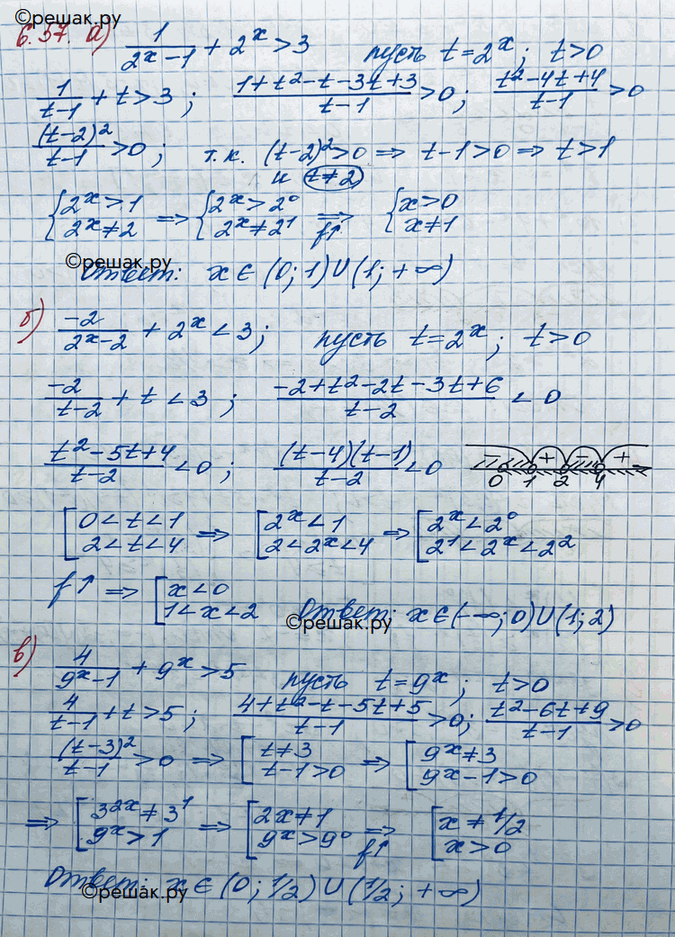 ©решак.ру
6.57. а) 1/(2^x-1) + 2^x > 3 пусть t=2^x; t>0
1/(t-1) + t > 3; (1+t²-t-3t+3)/(t-1) > 0; (t²-4t+4)/(t-1) > 0
(t-2)²/(t-1) > 0; т.к. (t-2)² > 0 ⇒ t-1>0 ⇒ t>1
и t≠2
{2^x>1 ⇒ {2^x>2^0 ⇒ {x>0
2^x≠2 2^x≠2^1 f↑ x≠1
©решак.ру
Ответ: x∈(0;1)∪(1;+∞)
б) -2/(2^x-2) + 2^x < 3; пусть t=2^x; t>0
-2/(t-2) + t < 3; (-2+t²-2t-3t+6)/(t-2) < 0
(t²-5t+4)/(t-2) < 0; (t-4)(t-1)/(t-2) < 0 - + - +
0 1 2 4
[0<t<1 ⇒ [2^x<1 ⇒ [2^x<2^0
2<t<4 2<2^x<4 2^1<2^x<2^2
f↑ ⇒ [x<0
1<x<2 Ответ: x∈(-∞;0)∪(1;2)
©решак.ру
в) 4/(9^x-1) + 9^x > 5 пусть t=9^x; t>0
4/(t-1) + t > 5; (4+t²-t-5t+5)/(t-1) > 0; (t²-6t+9)/(t-1) > 0
(t-3)²/(t-1) > 0 ⇒ [t≠3 ⇒ [9^x≠3
t-1>0 9^x-1>0
⇒ [3^2x≠3^1 ⇒ [2x≠1 ⇒ [x≠1/2
9^x>1 9^x>9^0 f↑ x>0
Ответ: x∈(0;1/2)∪(1/2;+∞)
©решак.ру